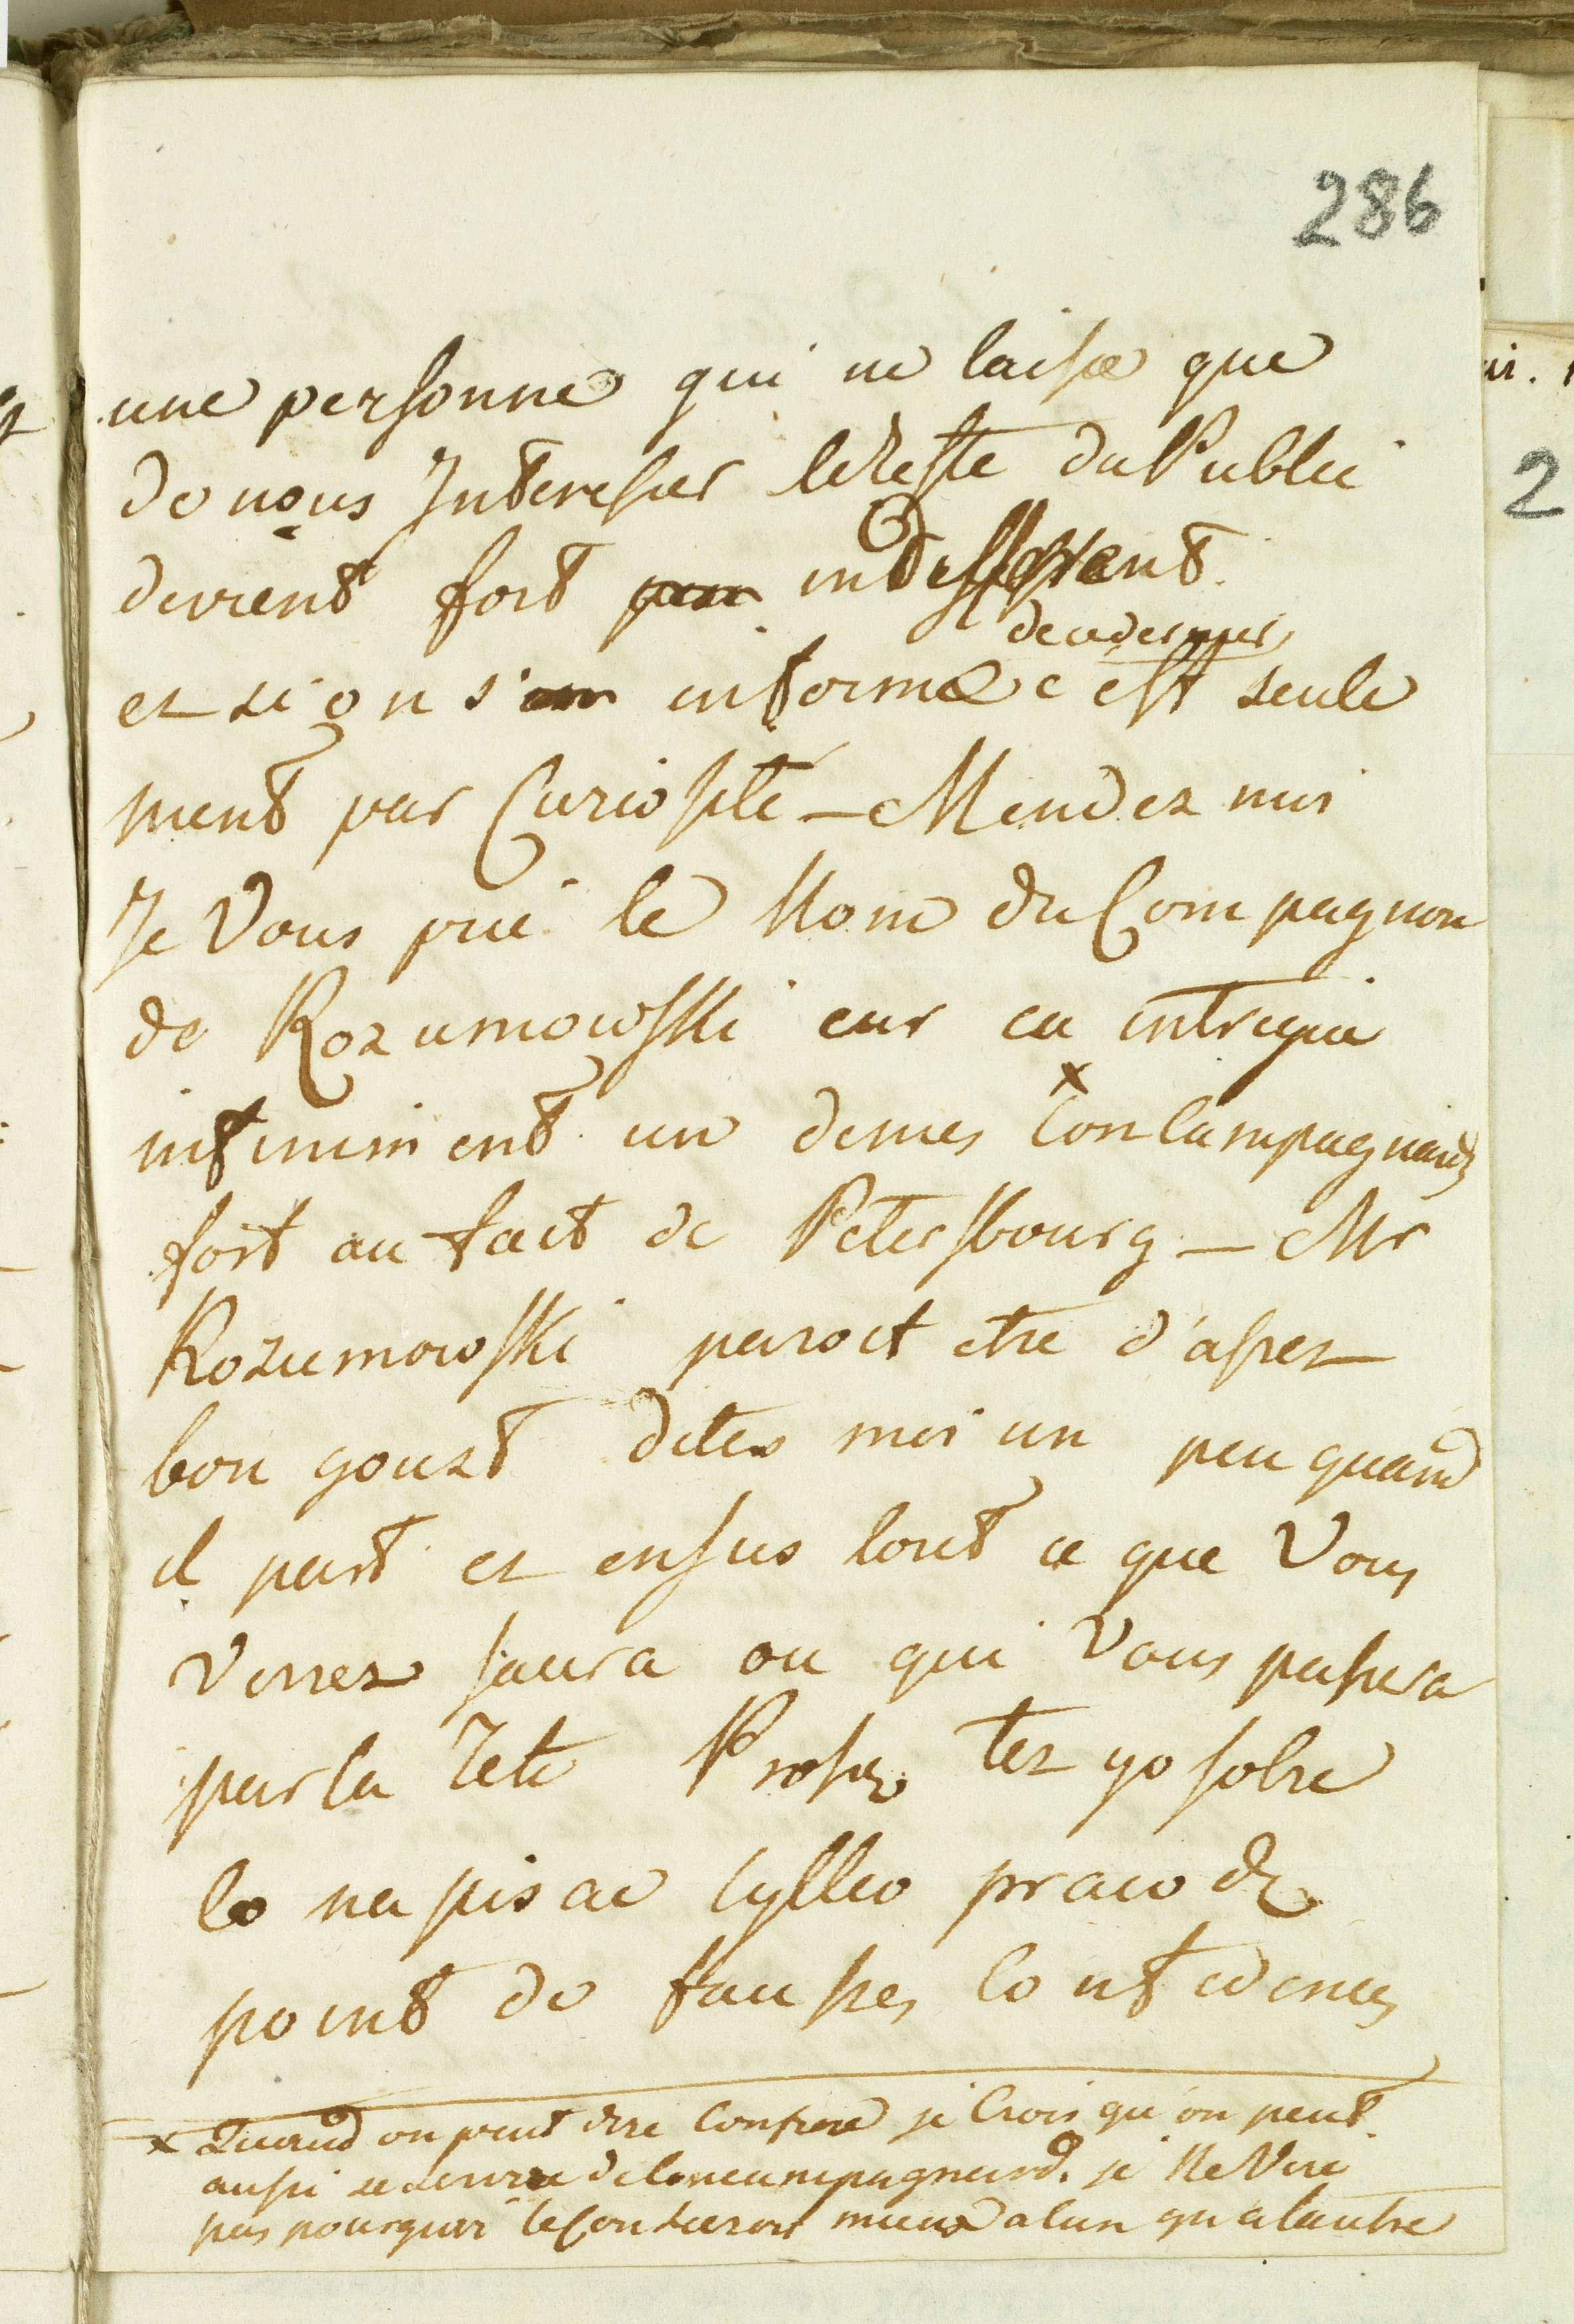 286
une personne qui ne laisse que
de nous Interesser le Reste du Public
devient fort indifferent
de ce dernier
et si on s' informe c'est seule
ment par Curiosité – Mendez moi
Je Vous prie le Nom du Compagnon
de Rozumowski car ca intrigue
infiniment un de mes Concampagnards
x
fort au fait de Petersbourg – Mr
Rozumowski paroit etre d'assez
bon goust dites moi un peu quand
il part et ensus tout ce que Vous
Verrez saura ou qui Vous passera
par la Tete Prosze tez go sobie
to napisac tylko prawdę
point de fausses Confidences
x Quand on peut dire Confrere je Crois qu'on peut
aussi se servir de Concampagnard. je Ne Voi
pas pourquoi le Con sieroit mieux a lun qu a lautre
2